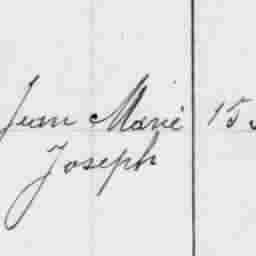 Jean Marie 15
Joseph